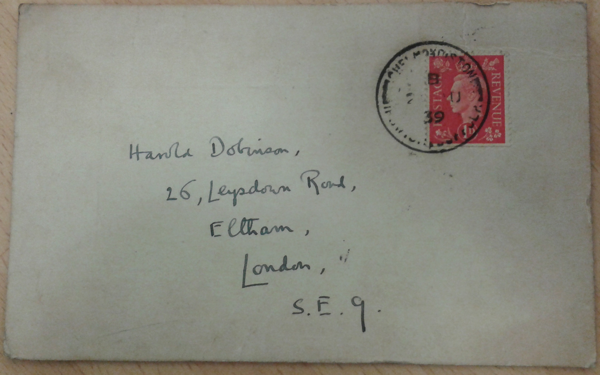 39
POSTAGE
REVENUE
Harold Dobinson,
26, Leysdown Road,
Eltham,
London,
S.E. 9.